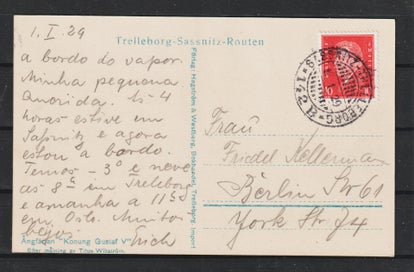 Trelleborg-Sassnitz-Routen
1. I. 29
a bordo do vapor.
Minha pequena
Querida. Às 4
horas estive em
Saßnitz e agora
estou a bordo.
Temos - 3° e neve
as 8 em Trelleborg
e amanha a 11 50
em Oslo. Muitos
beijos
Erich
Ångfärjan "Konung Gustaf V"
Efter målning av Titus Wikström.
Förlag: Hagström & Westberg, Bokhandel, Trelleborg
Frau
Friedel Kellermann
Berlin SW 61
York Str 74